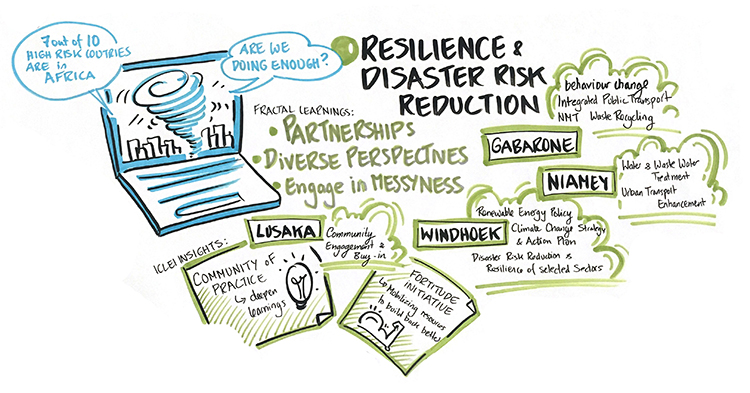 7 out of 10
HIGH RISK COUTRIES
ARE in
AFRICA
ARE WE
DOING ENOUGH?
RESILIENCE &
DISASTER RISK
REDUCTION
FRACTAL LEARNINGS:
• PARTNERSHIPS
• DIVERSE PERSPECTIVES
• Engage in MESSYNESS
behaviour change
Integrated Public Transport
NMT Waste Recycling
GABARONE
NIAMEY
Water & Waste Water
Treatment
Urban Transport
Enhancement
LUSAKA
Community
Engagement &
Buy-in
WINDHOEK
Renewable Energy Policy
Climate Change Strategy
& Action Plan
Disaster Risk Reduction &
Resilience of Selected Sectors
ICLEI INSIGHTS:
COMMUNITY OF
PRACTICE
↳ deepen
learnings
FORTITUDE
INITIATIVE
↳ Mobilizing resources
to build back better